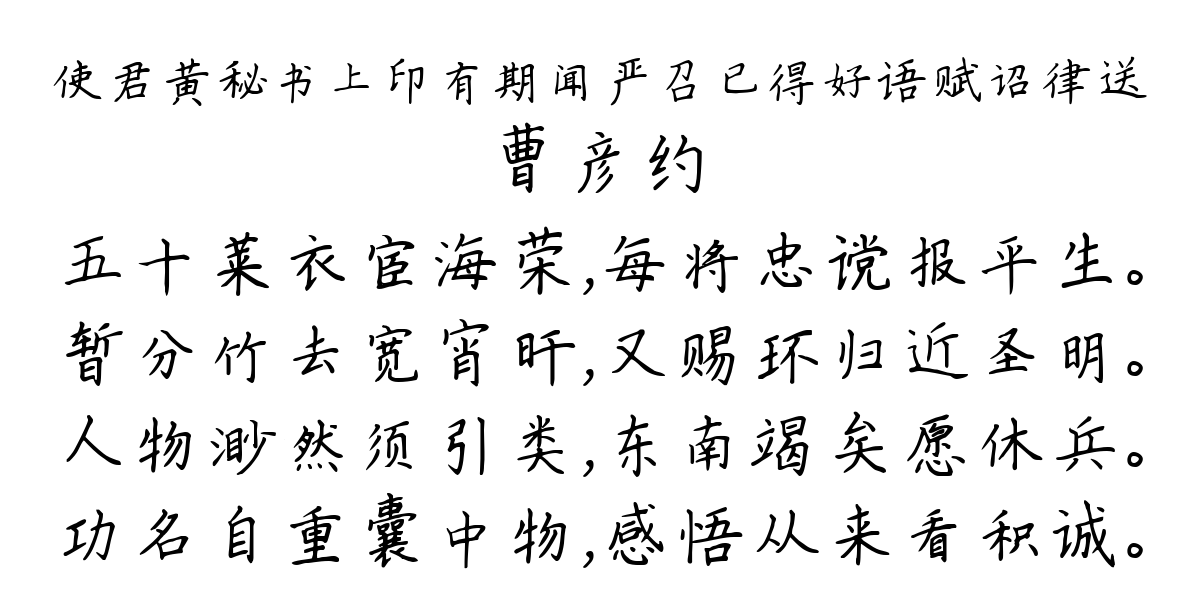 使君黄秘书上印有期闻严召已得好语赋诏律送
曹彦约
五十莱衣宦海荣,每将忠谠报平生。
暂分竹去宽宵旰,又赐环归近圣明。
人物渺然须引类,东南竭矣愿休兵。
功名自重囊中物,感悟从来看积诚。